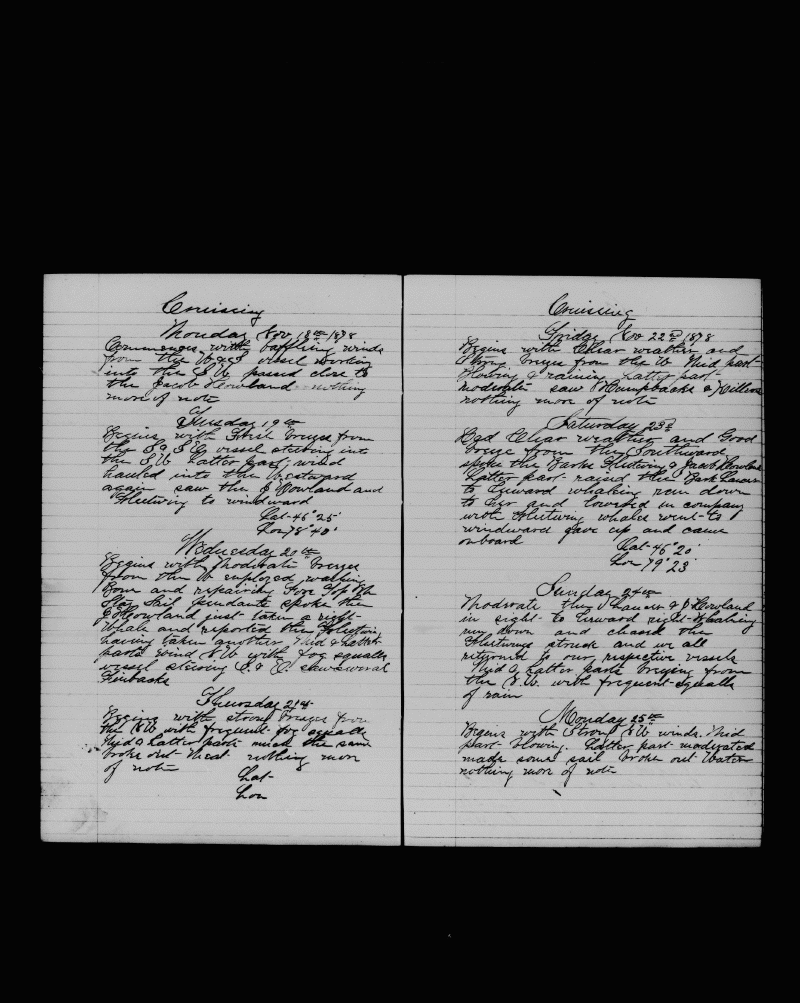 Cruising
Monday Nov 18th 1878
Commences with baffling winds
from the vessel working
into the S W passed close to
the Jacob Howland nothing
more of note
Tuesday 19th
Begins with breeze from
the S S E vessel steering into
the S W Latter part wind
hauled into the Westward
again saw the J Howland and
Fleetwing to windward
Lat 46° 25'
Lon 78° 40'
Wednesday 20th
Begins with Moderate breezes
from the W employed washing
Bone and repairing Fore Top
Sail pendants spoke the
J Howland just taken a right
Whale and reported the
having taken another Mid & Latter
parts wind N W with fog squalls
vessel steering S. & E. saw several
Finbacks
Thursday 21st
Begins with strong breezes from
the N W with frequent fog squalls
Mid & Latter parts much the same
broke out Meat nothing more
of note
Lat
Lon
Cruising
Friday Nov 22d 1878
Begins with Clear weather and
strong breeze from the W Mid part
blowing & raining Latter part
moderate saw Humpbacks & Killers
nothing more of note
Saturday 23d
Had Clear weather and Good
breeze from the Southward
spoke the Barks Fleetwing & Jacob Howland
Latter part raised the Bark
to Leeward whaling run down
to her and lowered in company
with Fleetwing whales went to
windward gave up and came
onboard
Lat 46° 20'
Lon 79° 23'
Sunday 24th
Moderate the & J Howland
in sight to Leeward right Whaling
run down and chased the
Fleetwings struck and we all
returned to our respective vessels
Mid & Latter parts breezing from
the N.W. with frequent squalls
of rain
Monday 25th
Begins with Strong N W winds. Mid
part blowing. Latter part moderated
made some sail broke out Water
nothing more of note